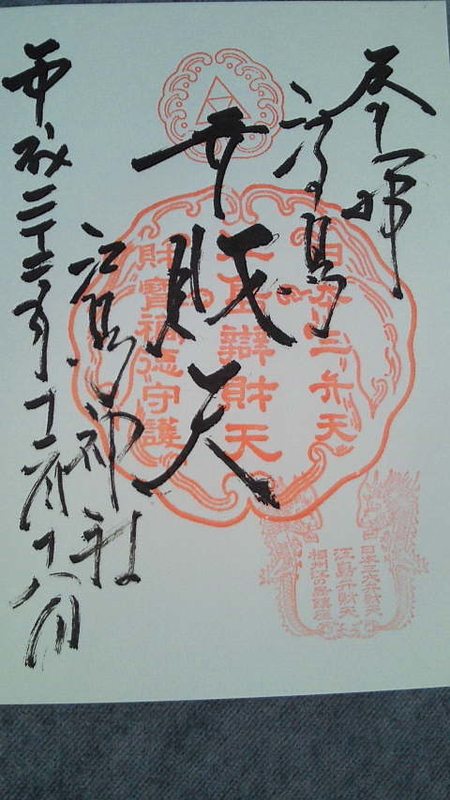 奉拝
江島
弁財天
江島神社
平成二十二年十二月十八日
日本三弁天
江島辯財天
財寶福徳守護
日本三大弁財天
江島弁財天
相州江の島鎮座